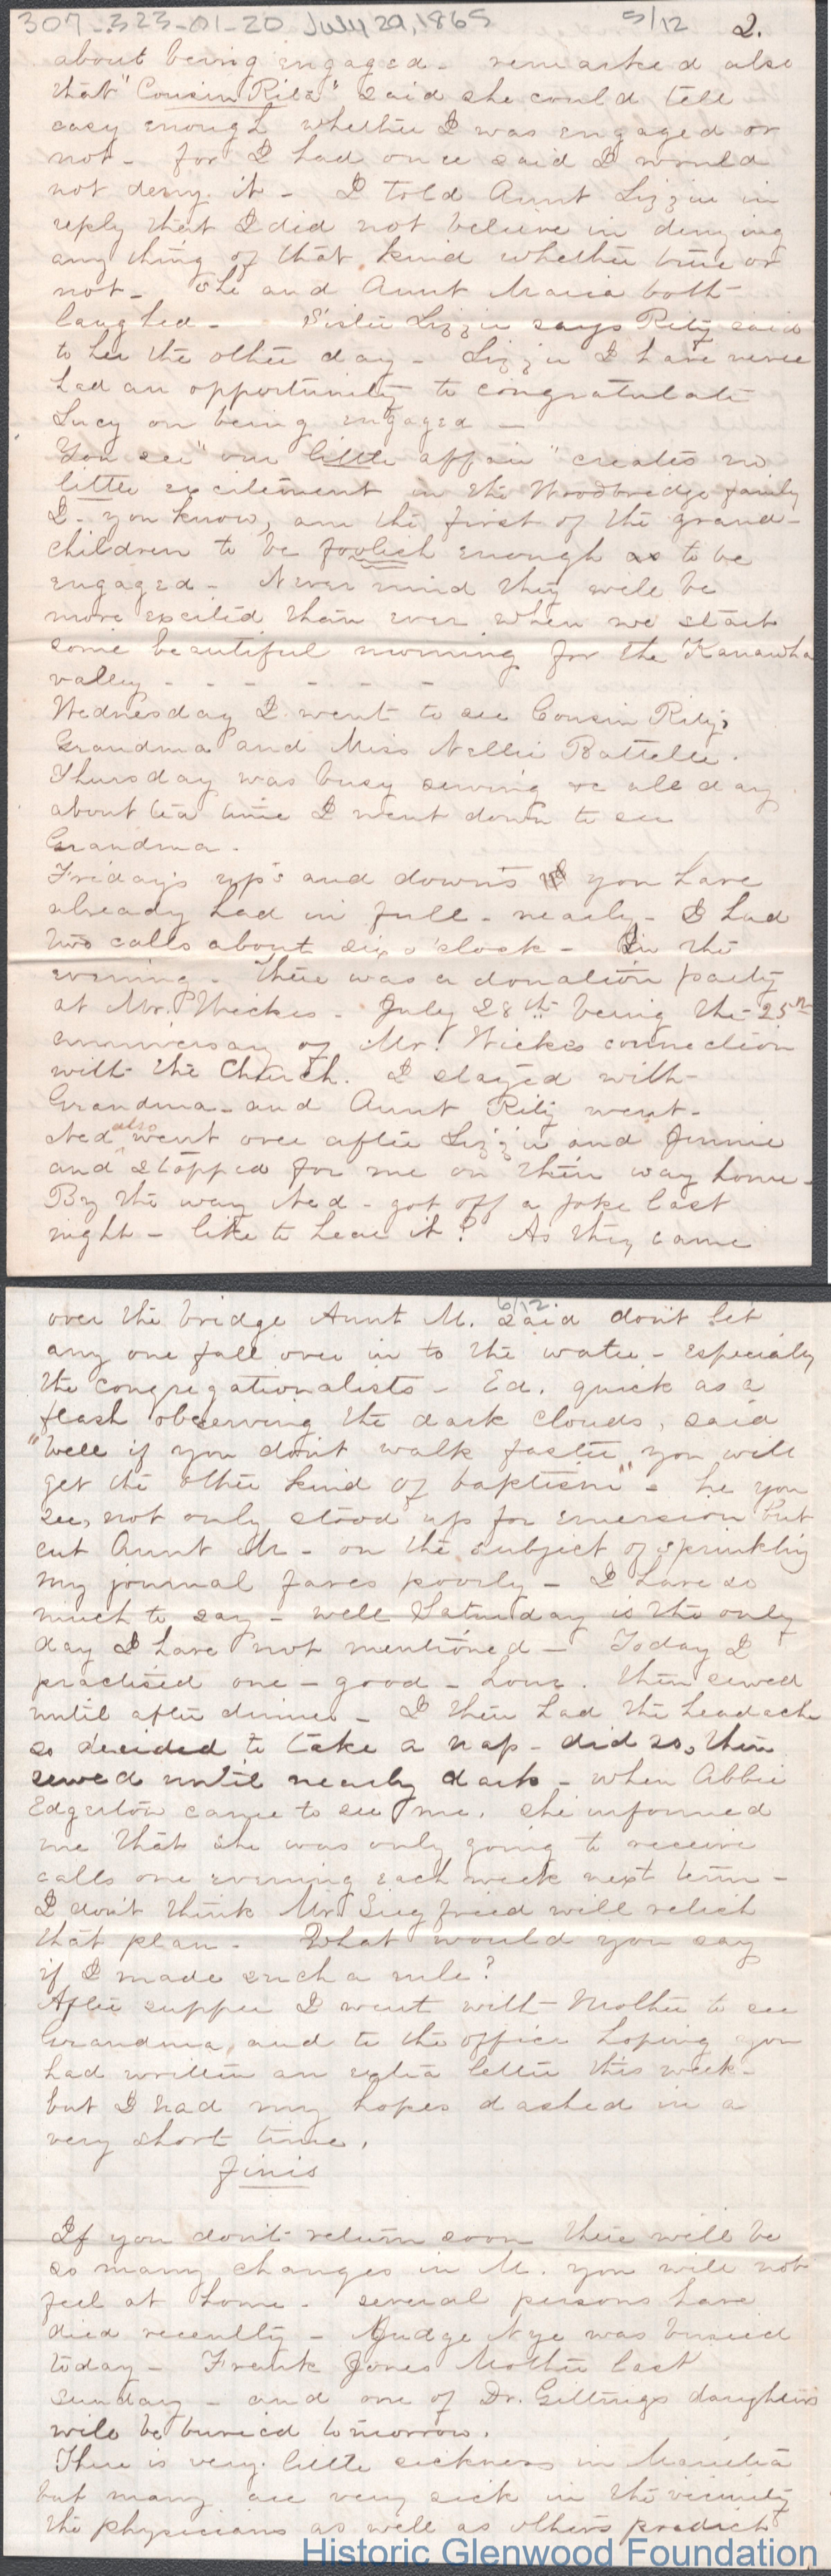 307-323-01-20 July 29, 1865 5/12 2.
about being engaged - remarked also
that "Cousin Rila" said she could tell
easy enough whether I was engaged or
not - for I had once said I would
not deny it - I told Aunt Lizzie in
reply that I did not believe in denying
any thing of that kind whether true or
not - She and Aunt Maria both
laughed - Sister Lizzie says Rily said
to her the other day - Lizzie I have never
had an opportunity to congratulate
Lucy on being engaged -
You see "our little affair" creates no
little excitement in the Woodbridge family
I - you know, am the first of the grand-
children to be foolish enough as to be
engaged - Never mind they will be
more excited than ever when we start
some beautiful morning for the Kanawha
valley - - - - - -
Wednesday I went to see Cousin Rily,
Grandma and Miss Nellie Battelle.
Thursday was busy sewing &c all day
about tea time I went down to see
Grandma.
Friday's up's and down's you have
already had in full - nearly - I had
two calls about six o'clock - In the
evening - there was a donation party
at Mr. Wickes - July 28th being the 25th
anniversary of Mr. Wickes connection
with the Church. I stayed with
Grandma - and Aunt Rily went -
Ned also went over after Lizzie and Jennie
and stopped for me on their way home -
By the way Ned - got off a joke last
night - like to hear it? As they came
over the bridge Aunt M. said don't let
6/12
any one fall over in to the water - especially
the congregationalists - Ed. quick as a
flash observing the dark clouds, said
"Well if you don't walk faster, you will
get the other kind of baptism" - he you
see, not only stood up for emersion but
cut Aunt M - on the subject of sprinkling
My journal fares poorly - I have so
much to say - well Saturday is the only
day I have not mentioned - Today I
practised one - good - hour. then sewed
until after dinner - I then had the headache
so decided to take a nap - did so, then
sewed until nearly dark - when Abbie
Edgerton came to see me. she informed
me that she was only going to receive
calls one evening each week next term -
I don't think Mr Siegfried will relish
that plan - What would you say
if I made such a rule?
After supper I went with Mother to see
Grandma, and to the office hoping you
had written an extra letter this week -
but I had my hopes dashed in a
very short time.
Finis
If you don't return soon there will be
so many changes in M. you will not
feel at home - several persons have
died recently - Judge Nye was buried
today - Frank Jones Mother last
Sunday - and one of Dr. Gittings daughters
will be buried tomorrow.
There is very little sickness in Marietta
but many are very sick in the vicinity
the physicians as well as others predict
Historic Glenwood Foundation